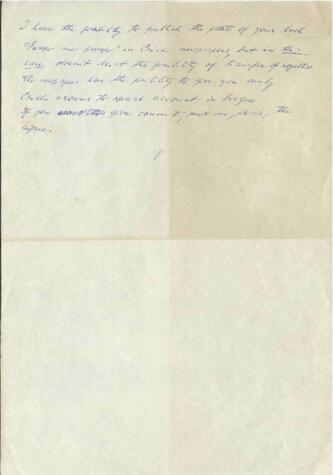 I have the posibility to publish the parts of your book
in Czech newspapers, but in this
case doesn't exist the posibility of transfer of
The newspaper has the posibility to give you only
Czech crowns to special account in Prague
If you give consent, send me, please, the
agree.